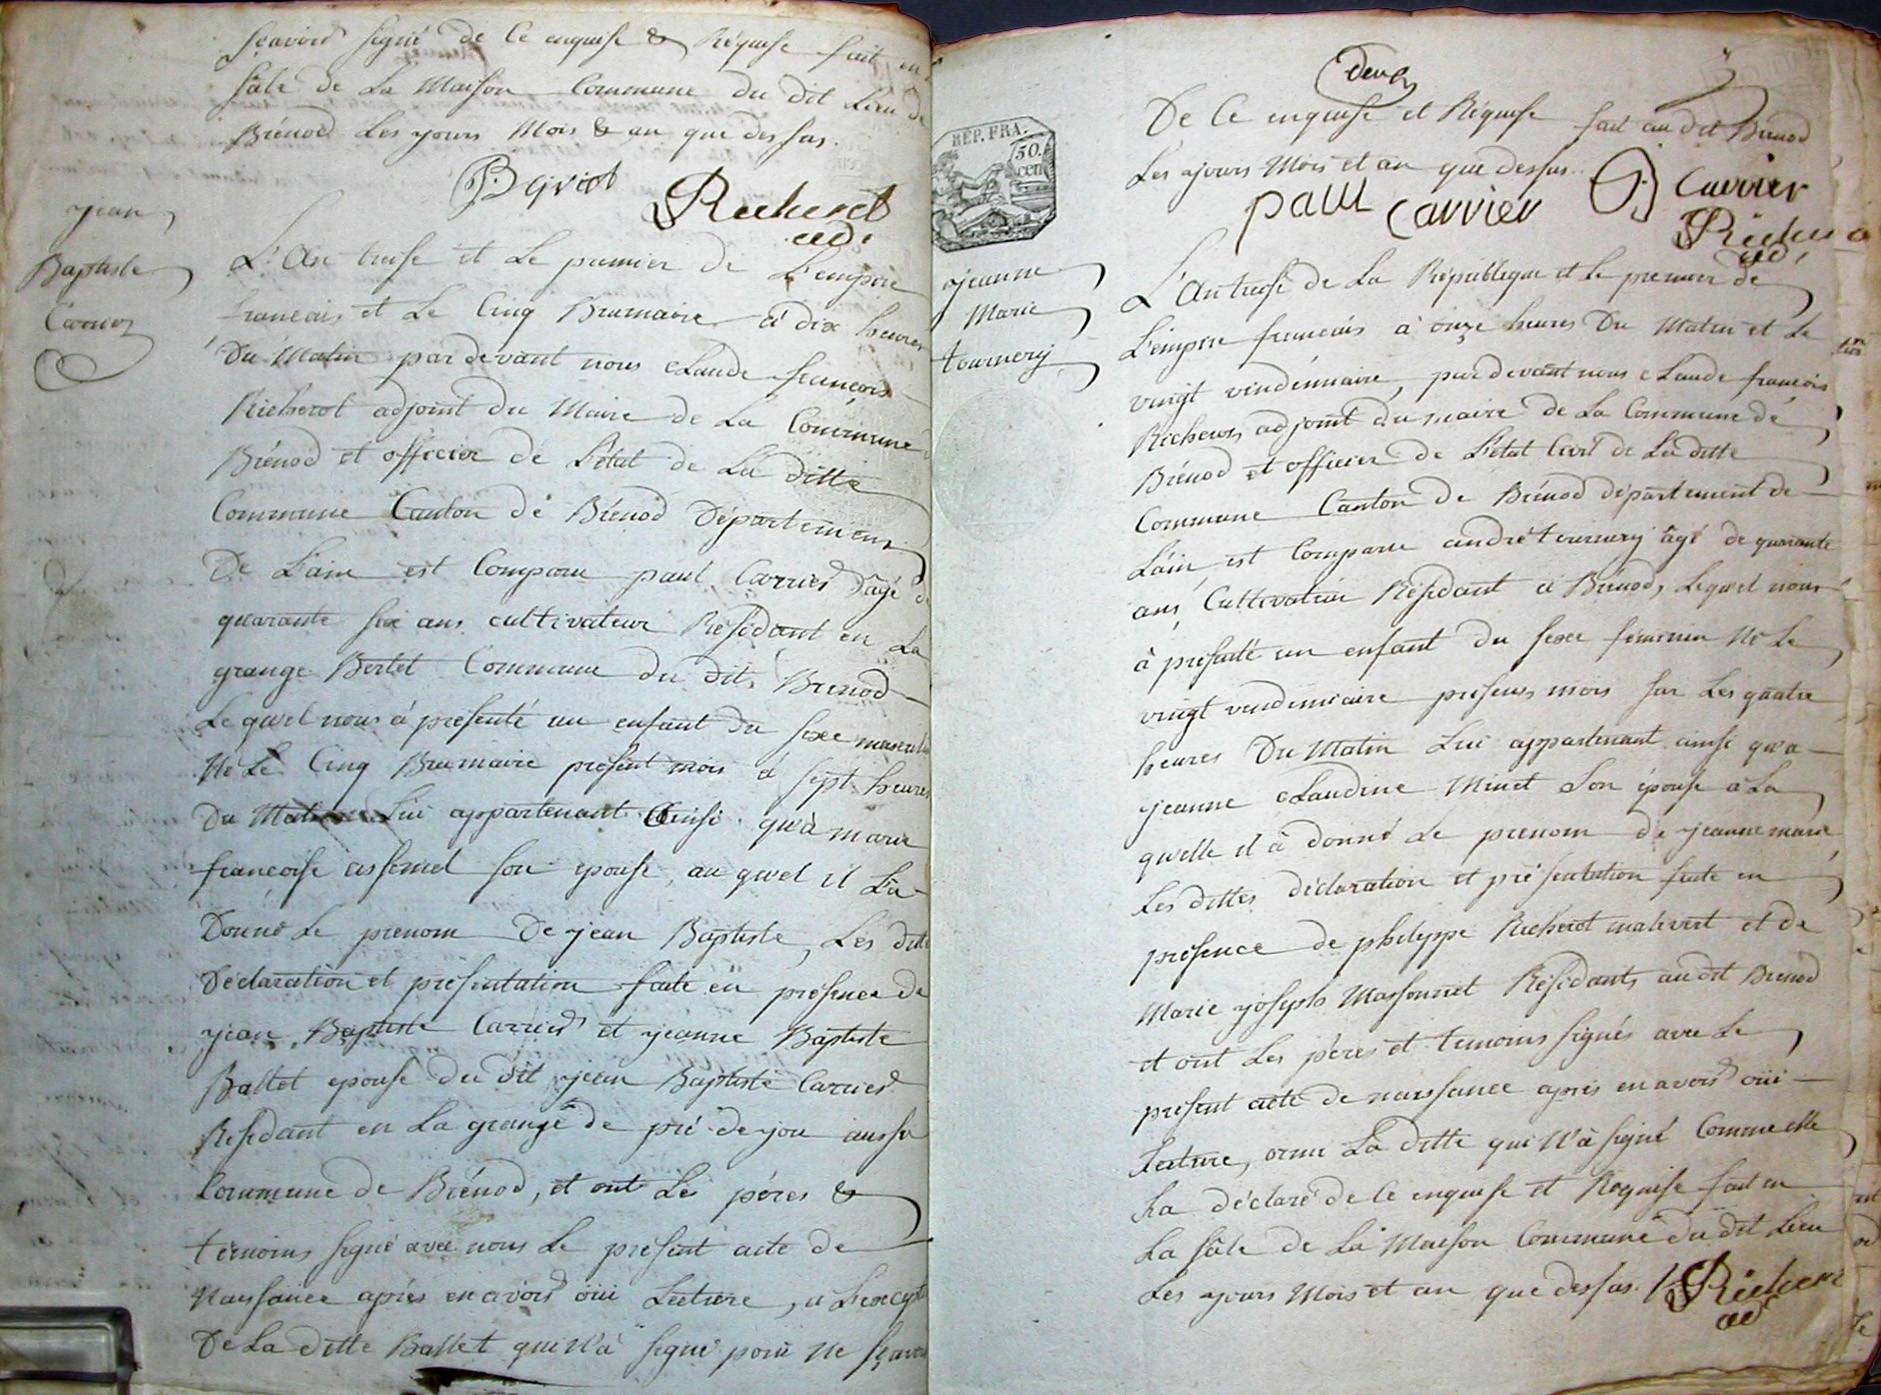 sçavoir signé de Ce enquise & Réquise fait en
Sale de La Maison Commune du dit Lieu de
Brénod Les yours Mois & an que dessus.
Richerot
adj.
jean
Baptiste
Carrier
L'An treise et Le premier de L'empire
francais et Le Cinq Brumaire à dix heures
Du Matin par devant nous Claude françois
Richerot adjoint du Maire de La Commune
Brénod et officier de L'état de La ditte
Commune Canton de Brénod Département
De L'ain est Comparu paul Carrier Dâgé de
quarante six ans cultivateur Résidant en La
grange Bertet Commune du dit Brénod
Le quel nous à présenté un enfant du sexe masculin
Né Le Cinq Brumaire présent mois à sept heures
Du Matin Lui appartenant Ainsi qu'à marie
francoise son épouse, au quel il La
Donné Le prénom De jean Baptiste, Les dittes
Déclaration et présentation faite en présence de
jean Baptiste Carrier et jeanne Baptiste
Ballet epouse du dit jean Baptiste Carrier
Résidant en La grange de pré de jou aussi
Commune de Brénod, et ont Le pères &
témoins signé avec nous Le présent acte de
Naissance après en avoir oüi Lecture, a L'exception
De La ditte Ballet qui N'a signé pour Ne sçavoir
RÉP. FRA.
50.
cen
deux
De Ce enquise et Réquise fait au dit Brénod
Les yours Mois et an que dessus.
paul carrier
Carrier
Richerot
adj.
jeanne
Marie
tournery
L'An treise de La République et le premier de
L'empire francais à onze heures Du Matin et Le
vingt vendémiaire, par devant nous Claude francois
Richerot, adjoint du maire de La Commune de
Brénod et officier de L'état Civil de La ditte
Commune Canton de Brénod département de
L'ain, est Comparu andré tournery âgé de quarante
ans, Cultivateur Résidant à Brénod, Lequel nous
à présenté un enfant du sexe féminin Né Le
vingt vendémiaire présent mois sur Les quatre
heures Du Matin Lui appartenant ainsi qu'a
jeanne Claudine Minet Son épouse a La
quelle il à donné Le prenom de jeanne marie
Les dittes déclaration et présentation faite en
présence de philippe Richerot malivert et de
Marie joseph Massonnet Résidants au dit Brénod
et ont Les pères et témoins signés avec Le
présent acte de naissance après en avoir oüi
Lecture, La ditte qui N'à signé Comme elle
La déclaré de Ce enquise et Requise fait en
La sâle de La Maison Commune du dit Lieu
Les yours Mois et an que dessus. Richerot
adj.